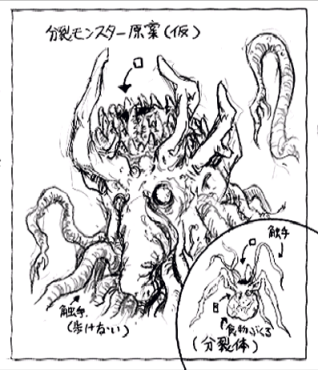 分裂モンスター原案(仮)
口
触手
(歩けない)
触手
口
目
食物ぶくろ
(分裂体)